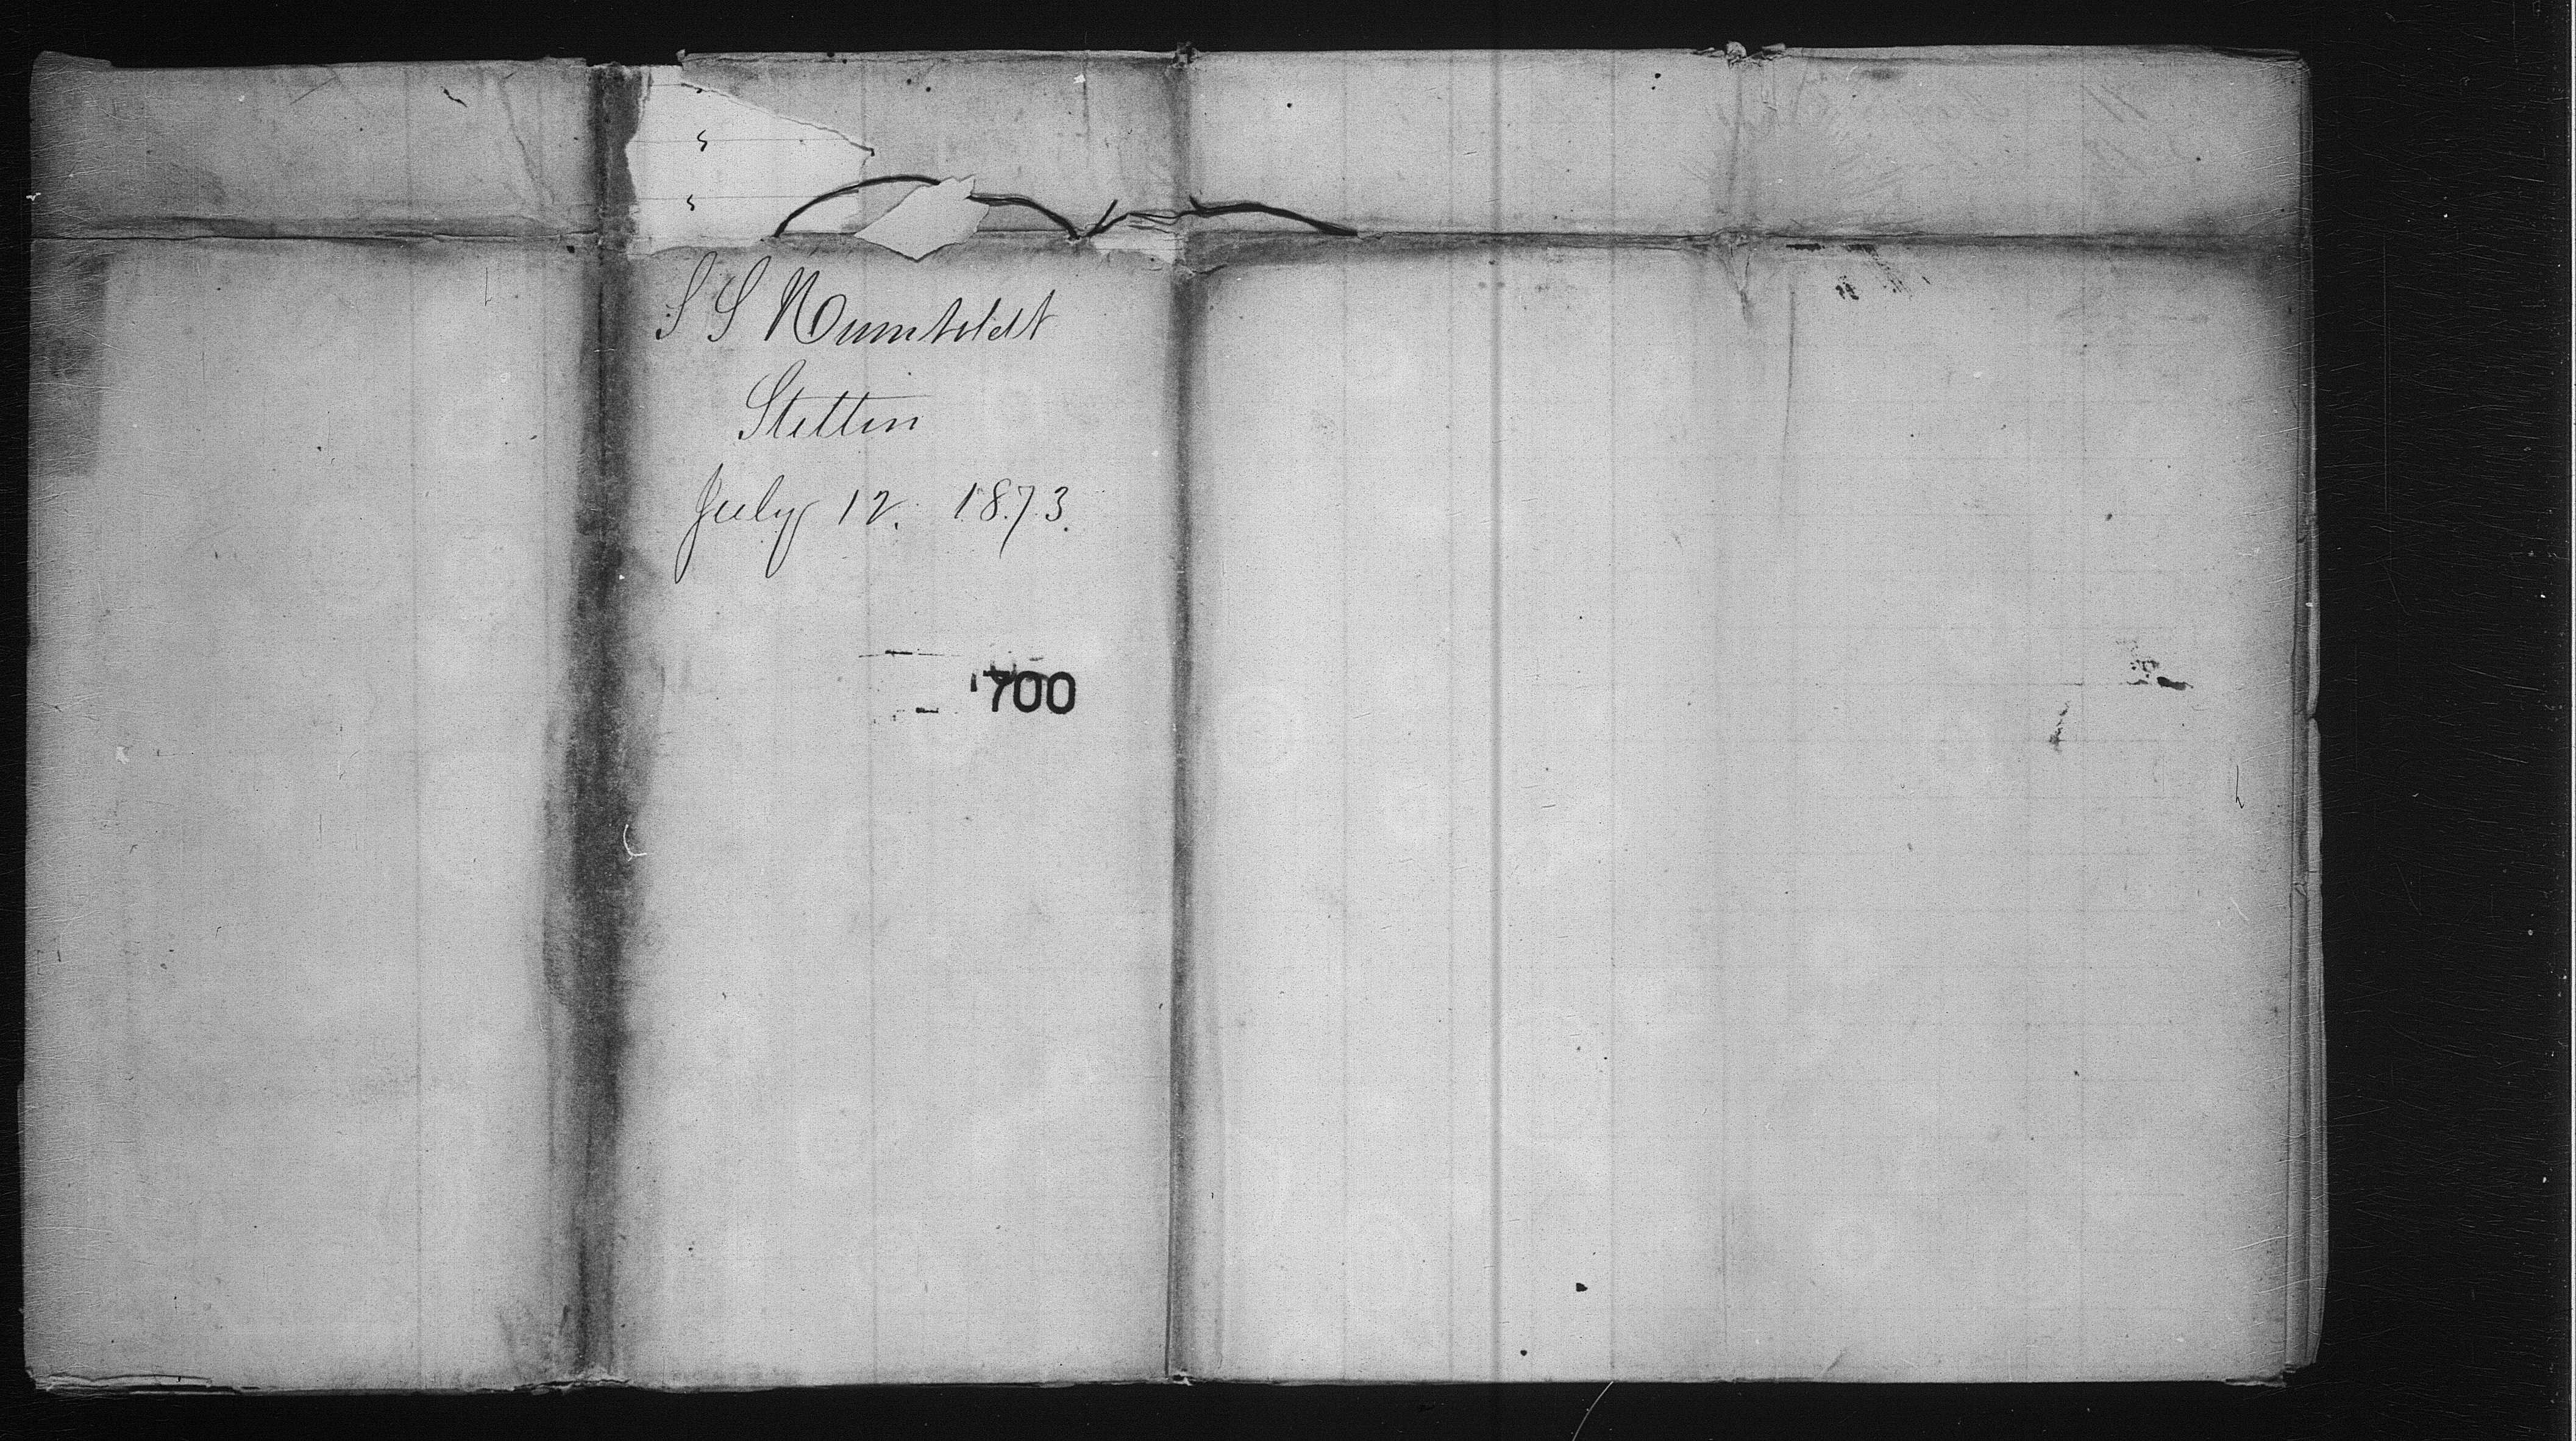 S S Humboldt
Stettin
July 12. 1873.
700